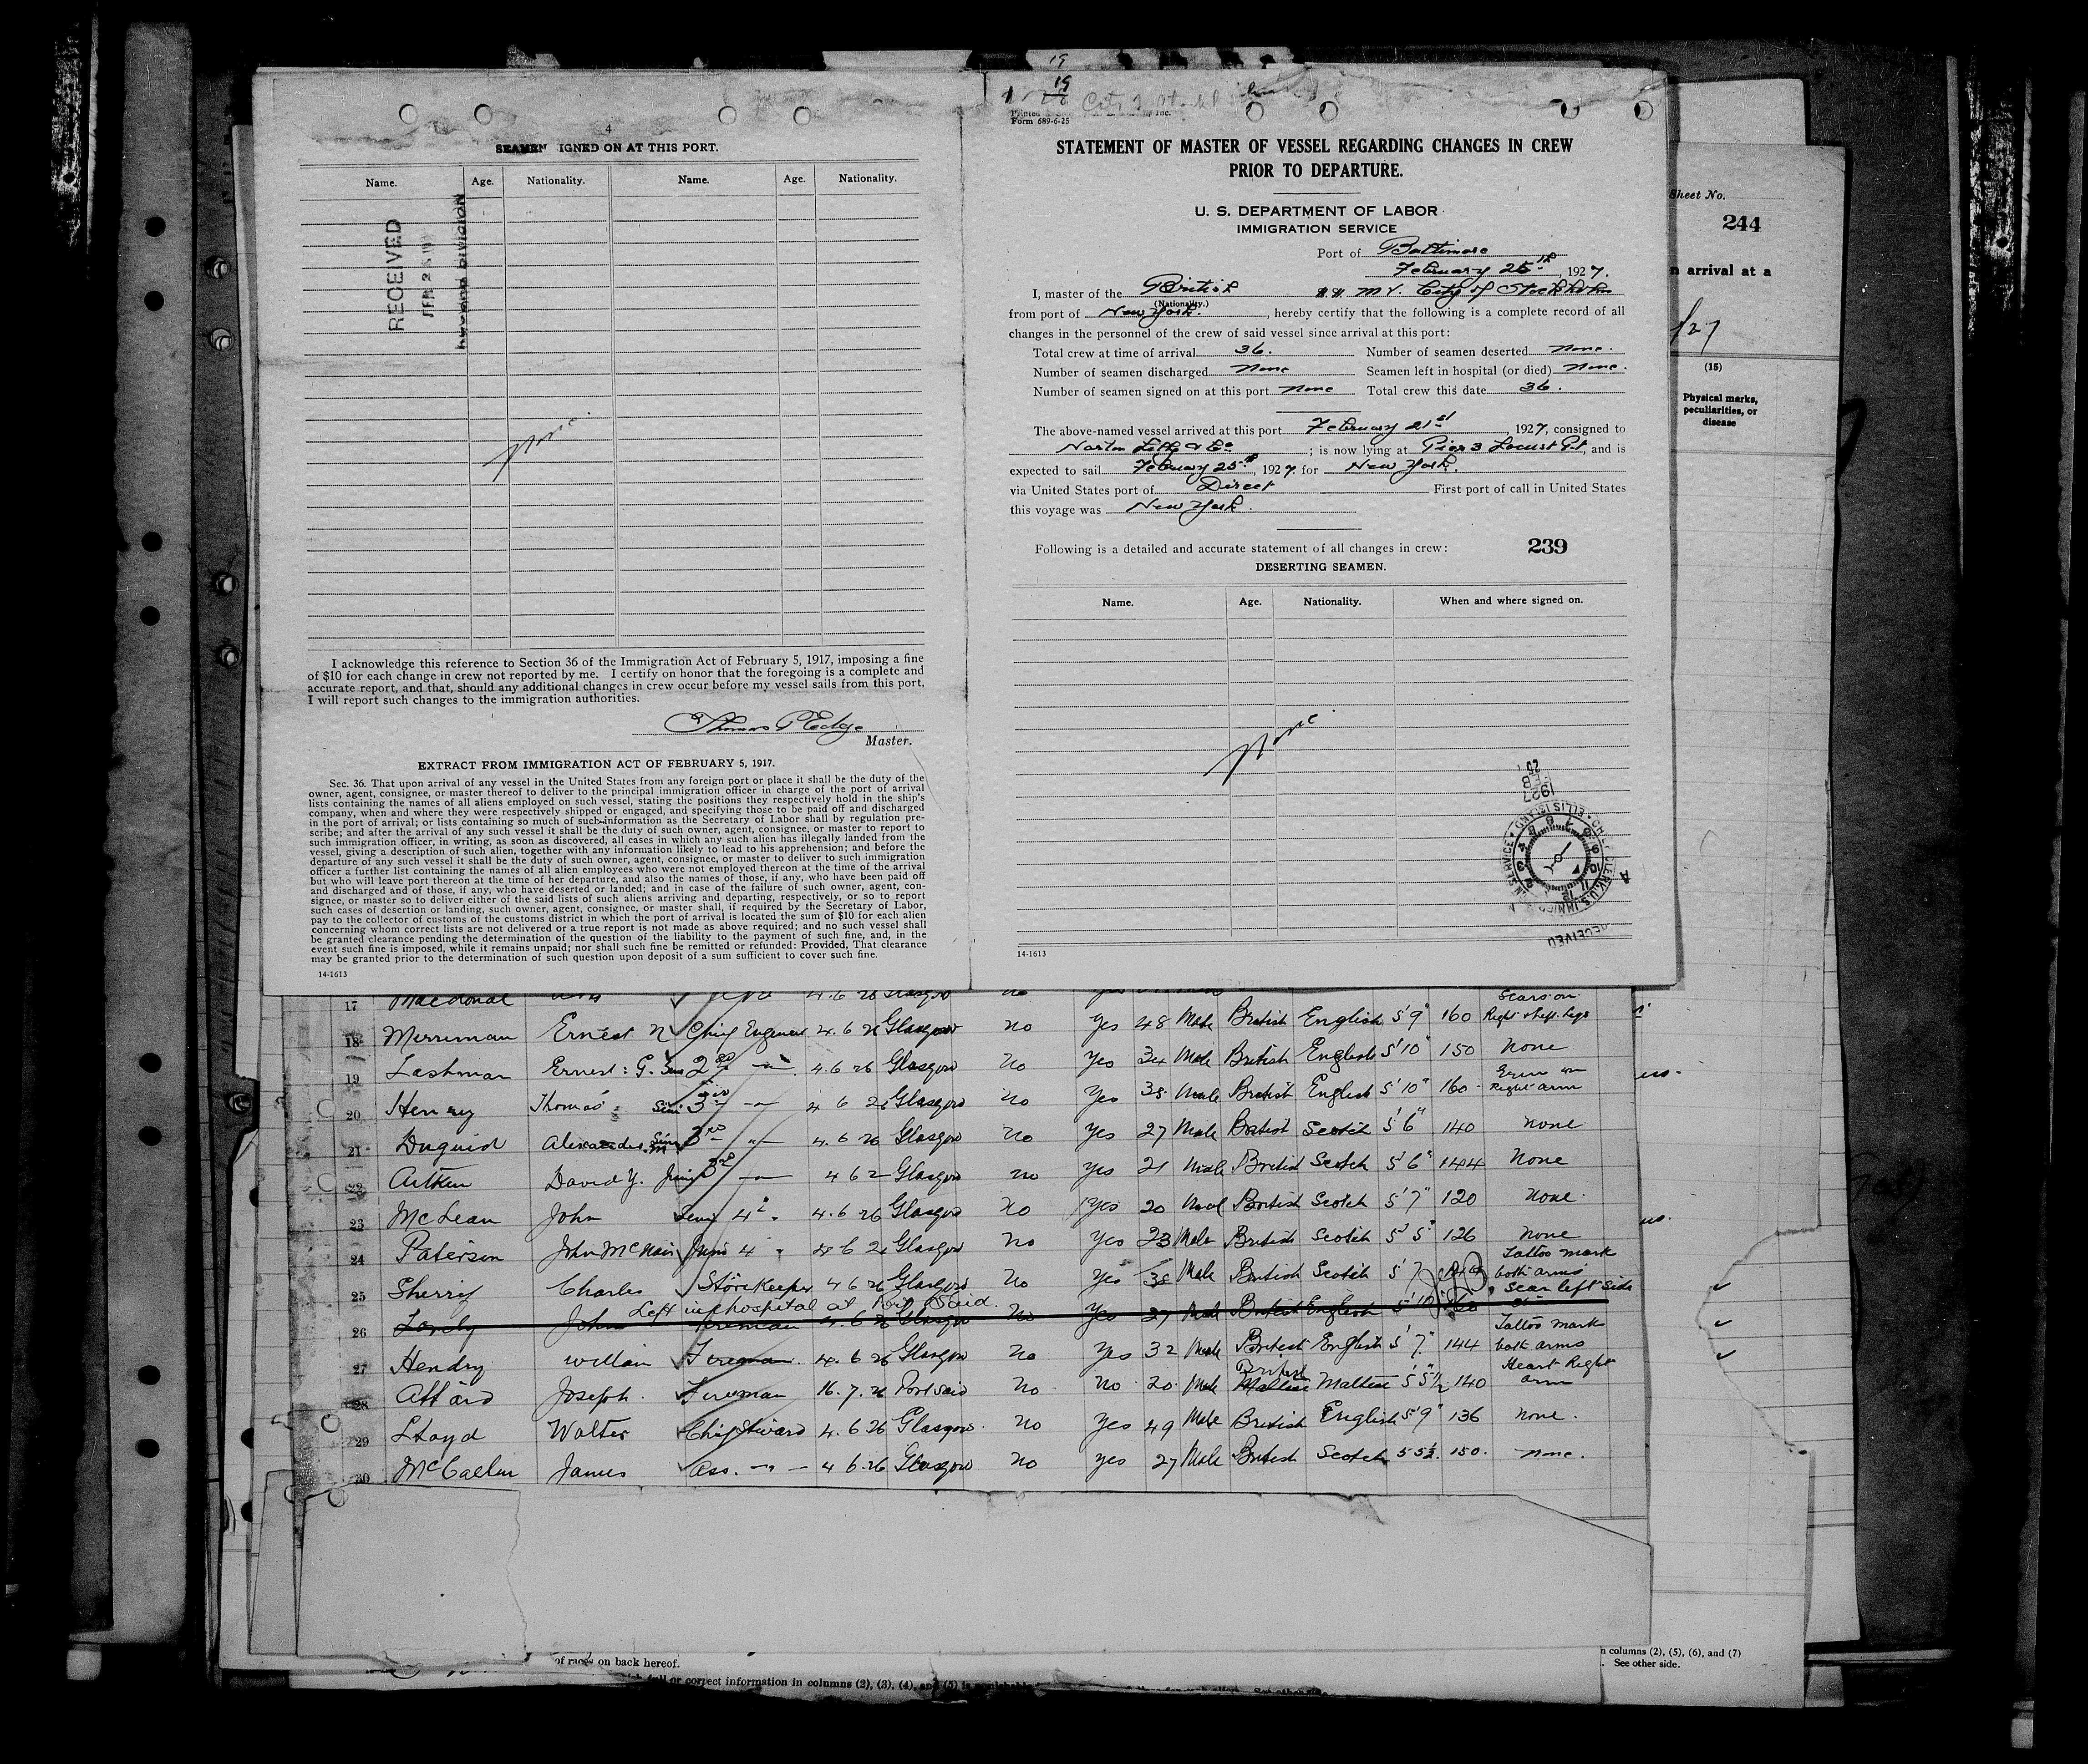 4
SEAMEN IGNED ON AT THIS PORT.
Name. Age. Nationality. Name. Age. Nationality.
RECEIVED
None
I acknowledge this reference to Section 36 of the Immigration Act of February 5, 1917, imposing a fine
of $10 for each change in crew not reported by me. I certify on honor that the foregoing is a complete and
accurate report, and that, should any additional changes in crew occur before my vessel sails from this port,
I will report such changes to the immigration authorities.
Thomas P Edge
Master.
EXTRACT FROM IMMIGRATION ACT OF FEBRUARY 5, 1917.
Sec. 36. That upon arrival of any vessel in the United States from any foreign port or place it shall be the duty of the
owner, agent, consignee, or master thereof to deliver to the principal immigration officer in charge of the port of arrival
lists containing the names of all aliens employed on such vessel, stating the positions they respectively hold in the ship's
company, when and where they were respectively shipped or engaged, and specifying those to be paid off and discharged
in the port of arrival; or lists containing so much of such information as the Secretary of Labor shall by regulation pre-
scribe; and after the arrival of any such vessel it shall be the duty of such owner, agent, consignee, or master to report to
such immigration officer, in writing, as soon as discovered, all cases in which any such alien has illegally landed from the
vessel, giving a description of such alien, together with any information likely to lead to his apprehension; and before the
departure of any such vessel it shall be the duty of such owner, agent, consignee, or master to deliver to such immigration
officer a further list containing the names of all alien employees who were not employed thereon at the time of the arrival
but who will leave port thereon at the time of her departure, and also the names of those, if any, who have been paid off
and discharged and of those, if any, who have deserted or landed; and in case of the failure of such owner, agent, con-
signee, or master so to deliver either of the said lists of such aliens arriving and departing, respectively, or so to report
such cases of desertion or landing, such owner, agent, consignee, or master shall, if required by the Secretary of Labor,
pay to the collector of customs of the customs district in which the port of arrival is located the sum of $10 for each alien
concerning whom correct lists are not delivered or a true report is not made as above required; and no such vessel shall
be granted clearance pending the determination of the question of the liability to the payment of such fine, and, in the
event such fine is imposed, while it remains unpaid; nor shall such fine be remitted or refunded: Provided, That clearance
may be granted prior to the determination of such question upon deposit of a sum sufficient to cover such fine.
14-1613
19
19
Printed Inc.
Form 689-6-25
STATEMENT OF MASTER OF VESSEL REGARDING CHANGES IN CREW
PRIOR TO DEPARTURE.
U. S. DEPARTMENT OF LABOR
IMMIGRATION SERVICE
Port of Baltimore
February 25th, 1927.
I, master of the British M.V. City of Stockholm
(Nationality.)
from port of New York., hereby certify that the following is a complete record of all
changes in the personnel of the crew of said vessel since arrival at this port:
Total crew at time of arrival 36. Number of seamen deserted None.
Number of seamen discharged None Seamen left in hospital (or died) None.
Number of seamen signed on at this port None Total crew this date 36.
The above-named vessel arrived at this port February 21st, 1927, consigned to
Norton Lilly & Co; is now lying at Pier 3 Locust Pt, and is
expected to sail February 25th, 1927, for New York.
via United States port of Direct First port of call in United States
this voyage was New York.
Following is a detailed and accurate statement of all changes in crew: 239
DESERTING SEAMEN.
Name. Age. Nationality. When and where signed on.
None
FEB 1927
RECEIVED
14-1613
Sheet No.
244
n arrival at a
(15)
Physical marks,
peculiarities, or
disease
17 Macdonal
18 Merriman Ernest N Chief Engineer 4.6 26 Glasgow no Yes 48 Male British English 5'9" 160 Scars on Right & Left Legs
19 Lashmar Ernest: G. Sen 2nd 4.6 26 Glasgow No Yes 34 Male British English 5'10" 150 None
20 Henry Thomas Sen 3rd 4 6 26 Glasgow no Yes 38 Male British English 5'10" 160 Right arm
21 Duguid Alexander 3rd 4.6 26 Glasgow No Yes 27 Male British Scotch 5'6" 140 none
22 Aitken David Y. Juni 3rd 4 6 2 Glasgow no Yes 21 Male British Scotch 5'6" 144 None
23 McLean John Seni 4th 4.6 26 Glasgow No Yes 20 Male British Scotch 5'7" 120 None.
24 Paterson John McNair Juni 4 4 6 26 Glasgow No Yes 23 Male British Scotch 5'5" 126 none
25 Sherrif Charles Storekeeper 4 6 26 Glasgow No Yes 38 Male British Scotch 5'7 Tattoo mark both arms
Left in hospital at Port Said.
26 John Fireman 4.6 26 Glasgow No Yes 27 Male British English 5'10 160 Scar left side
27 Hendry William Fireman. 4.6 26 Glasgow No Yes 32 Male British English 5'7" 144 Tattoo marks both arms
28 Attard Joseph. Fireman 16.7.26 Port said No. No. 20. Male British Maltese Maltese 5'5"1/2 140 Heart Right arm
29 Lloyd Walter Chief Steward 4.6 26 Glasgow. No Yes 49 Male British English 5'9" 136 none.
30 McCallum James Ass. 4 6.26 Glasgow No yes 27 Male British Scotch 5 5½. 150. none.
of races on back hereof.
full or correct information in columns (2), (3), (4), and (5) is
n columns (2), (5), (6), and (7)
See other side.